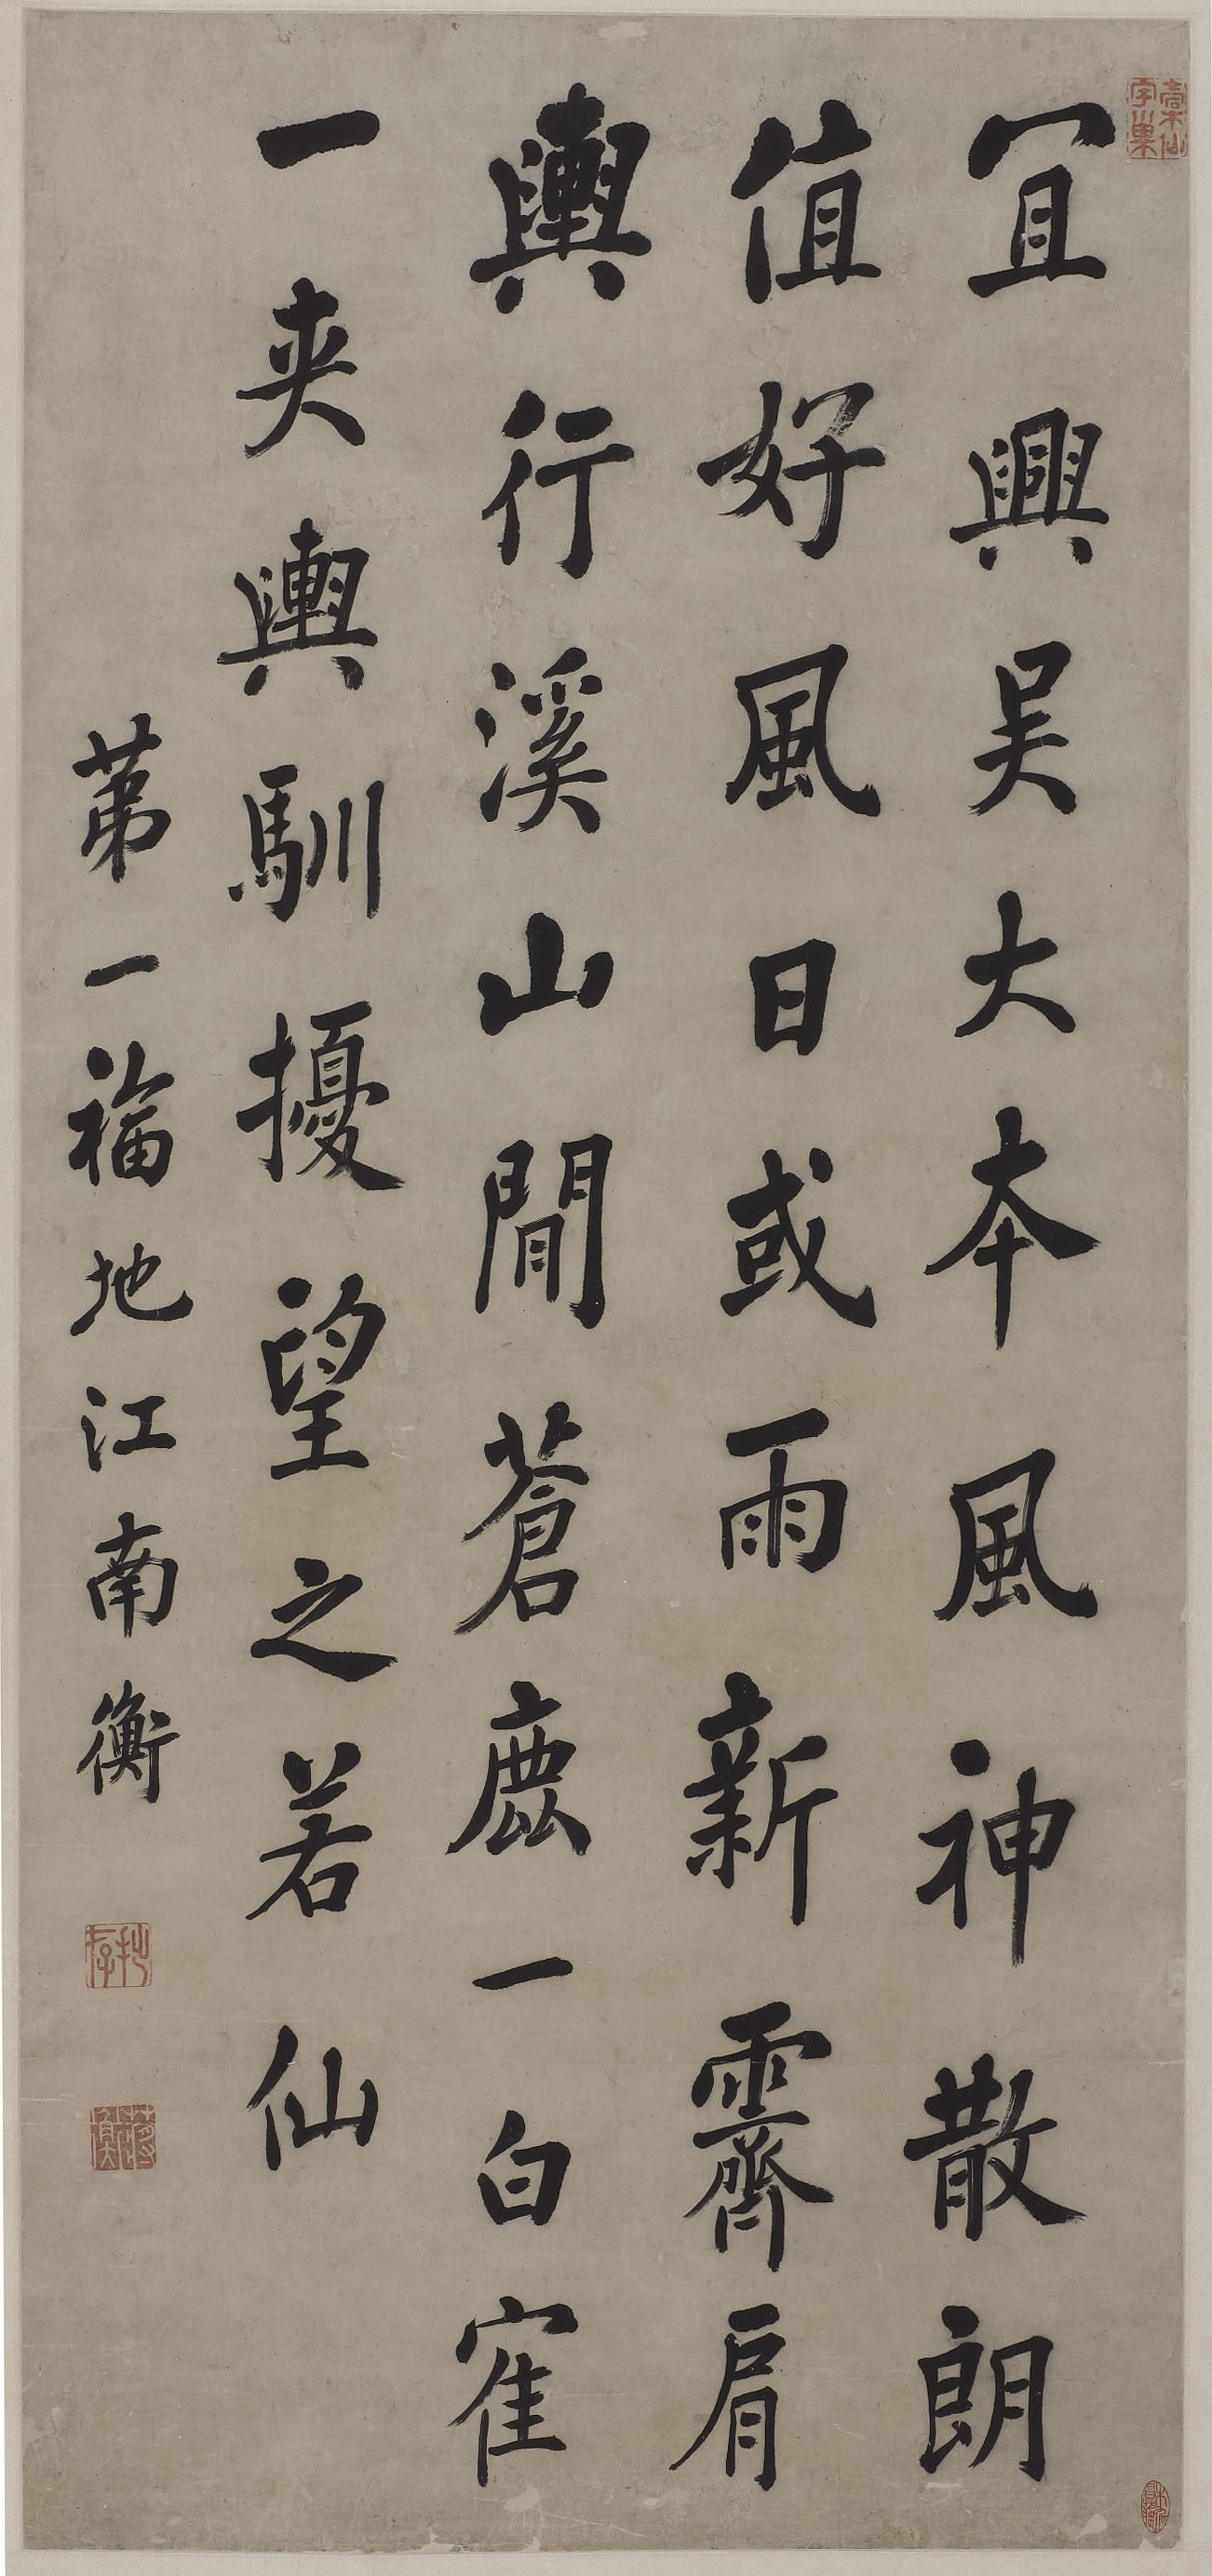 宜興吴大本風神散朗
值好風日或雨新霽肩
輿行溪山間蒼鹿一白寉
一夾輿馴擾望之若仙
苐一福地江南衡